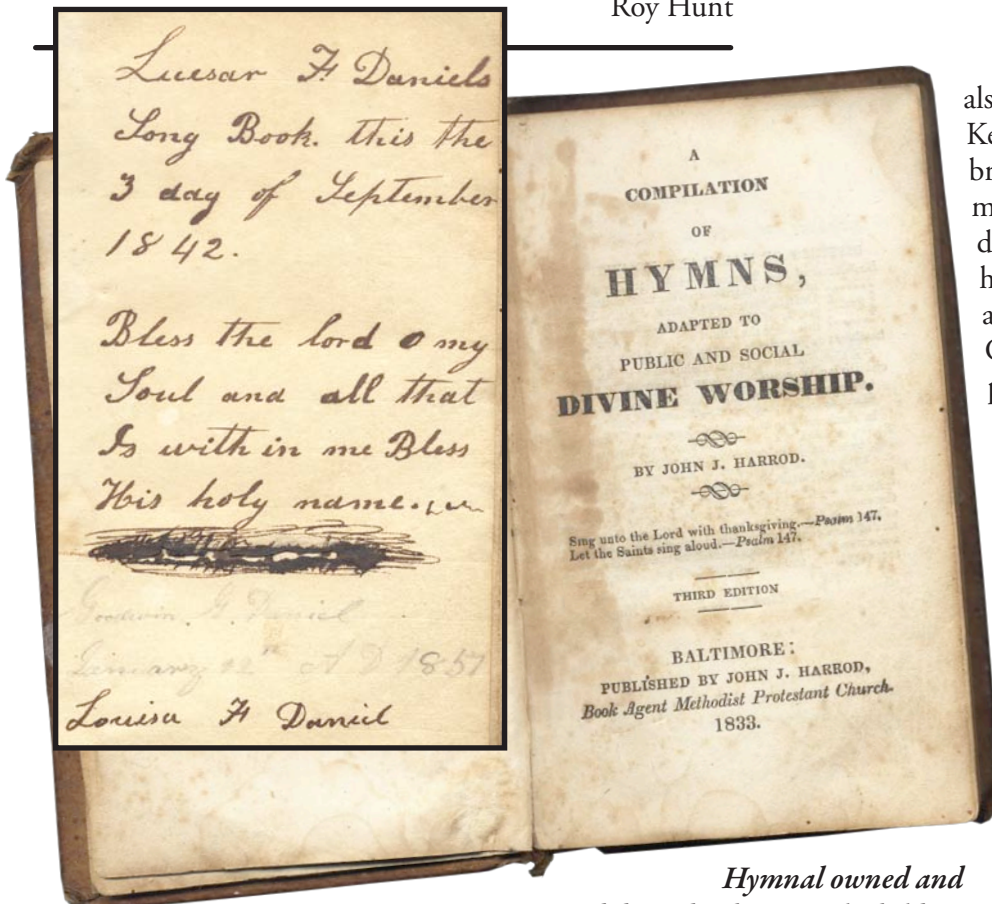 Roy Hunt
Luesar F Daniels
Song Book. this the
3 day of September
1842.
Bless the lord o my
Soul and all that
Is with in me Bless
His holy name.
Goodwin G. Daniel
A D 1851
Louisa F Daniel
A
COMPILATION
OF
HYMNS,
ADAPTED TO
PUBLIC AND SOCIAL
DIVINE WORSHIP.
BY JOHN J. HARROD.
Sing unto the Lord with thanksgiving.—Psalm 147.
Let the Saints sing aloud.—Psalm 147.
THIRD EDITION
BALTIMORE:
PUBLISHED BY JOHN J. HARROD,
Book Agent Methodist Protestant Church.
1833.
Hymnal owned and